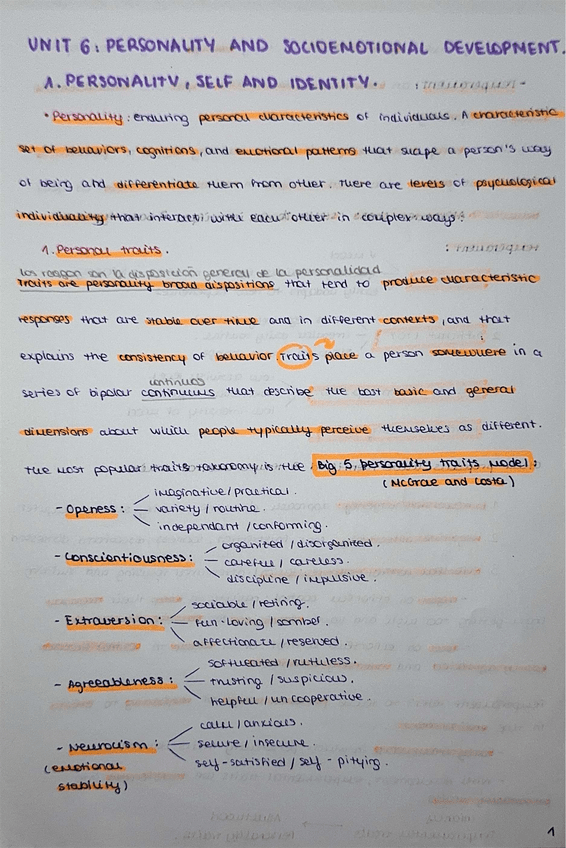 UNIT 6: PERSONALITY AND SOCIOEMOTIONAL DEVELOPMENT.
1. PERSONALITY, SELF AND IDENTITY.
• Personality: enduring personal characteristics of individuals. A characteristic
set of behaviors, cognitions, and emotional patterns that shape a person's way
of being and differentiate them from other. There are levels of psychological
individuality that interact with each other in complex ways:
1. Personal traits.
los rasgon son la disposición general de la personalidad
Traits are personality broad dispositions that tend to produce characteristic
responses that are stable over time and in different contexts, and that
explains the consistency of behavior. Traits place a person somewhere in a
continuos
series of bipolar continuums that describe the bast basic and general
dimensions about which people typically perceive themselves as different.
The most popular traits taxonomy is the Big 5 personality traits model:
(McGrae and Costa)
- Openess: imaginative / practical.
variety / routine.
independant / conforming.
- Conscientiousness: organized / disorganized.
careful / careless.
discipline / impulsive.
- Extraversion: sociable / retiring.
fun-loving / somber.
affectionate / reserved.
- Agreeableness: softhearted / ruthless.
trusting / suspicious.
helpful / uncooperative.
- Neurocism: calm / anxious.
(emotional secure / insecure.
stability) self-satisfied / self-pitying.
1